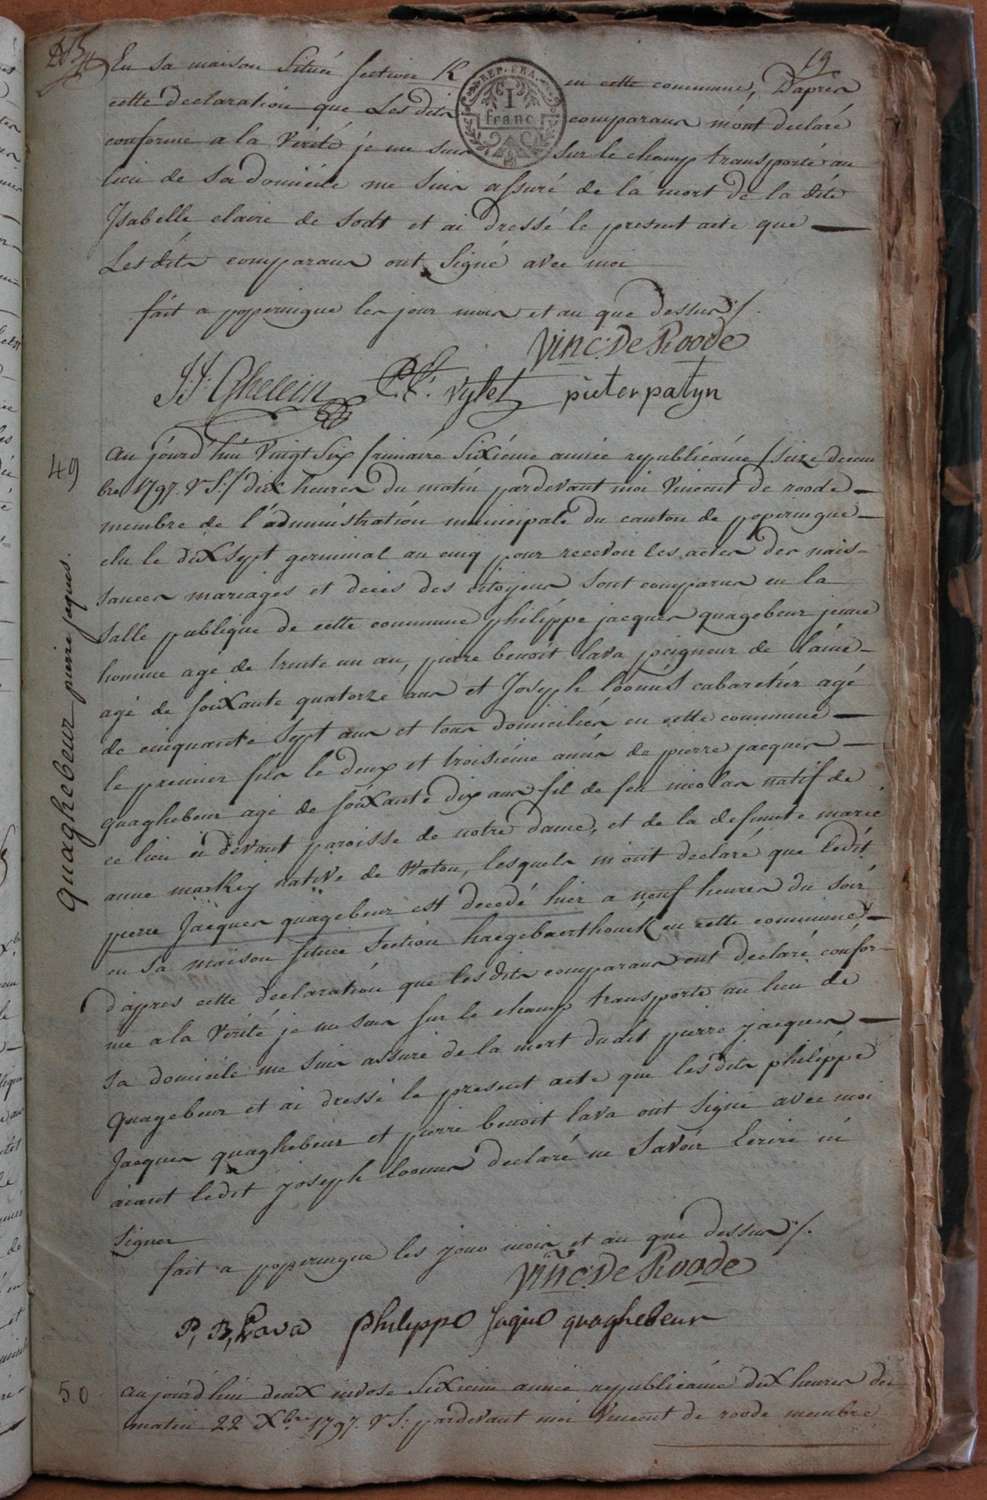 19
En sa maison Située section K en cette commune, Daprès
cette declaration que Lesdits comparans m'ont declaré
conforme a la Verité je me suis sur le champ transporté au
lieu de Sa domicile me suis assuré de la mort de la dite
Isabelle claire de Sodt et ai dressé le present acte que
Lesdits comparans ont Signé avec moi
fait a poperingue les jour mois et an que dessus ./.
REP. FRA.
1
franc
Vinc: De Roode
J: J: Ghelein
vylet
pieter patyn
49
quaghebeur pierre jaques.
Au jourd'hui Vingt Six frimaire Sixième année republicaine (Seize decem
bre 1797. V S:) dix heures du matin pardevant moi Vincent de roode
membre de l'administration municipale du canton de poperingue
elu le dix Sept germinal an cinq pour recevoir les actes des nais-
sances mariages et deces des citoyens Sont comparus en la
Salle publique de cette commune philippe jacques quagebeur jeune
homme agé de trente un an, pierre benoit Lava peigneur de laine
agé de soixante quatorze ans et Joseph loonus cabaretier agé
de cinquante Sept ans et tous domiciliés en cette commune
le premier fils le deux et troisième amis de pierre jacques
quaghebeur agé de soixante dix ans fil de feu nicolas natif de
ce lieu ci devant paroisse de notre dame, et de la defunte marie
anne markey native de Watou, lesquels m'ont declaré que ledit
pierre Jacques quagebeur est decedé hier a neuf heures du soir
en sa maison située Section haegebaerthouck en cette commune
d'apres cette declaration que lesdits comparans ont declaré confor-
me a la Verité je me suis sur le champ transporté au lieu de
sa domicile me suis assuré de la mort dudit pierre jacques
quagebeur et ai dressé le present acte que lesdits philippe
Jacques quaghebeur et pierre benoit lava ont signé avec moi
aiant ledit joseph loonus declaré ne Savoir Ecrire ni
Signer
fait a poperingue les jour mois et an que dessus ./.
Vinc: De Roode
P, B, Lava philippe Jaque quaghebeur
50
aujourd'hui deux nivose Sixieme année republicaine dix heures du
matin 22 Xbre 1797. V S: pardevant moi Vincent de roode membre